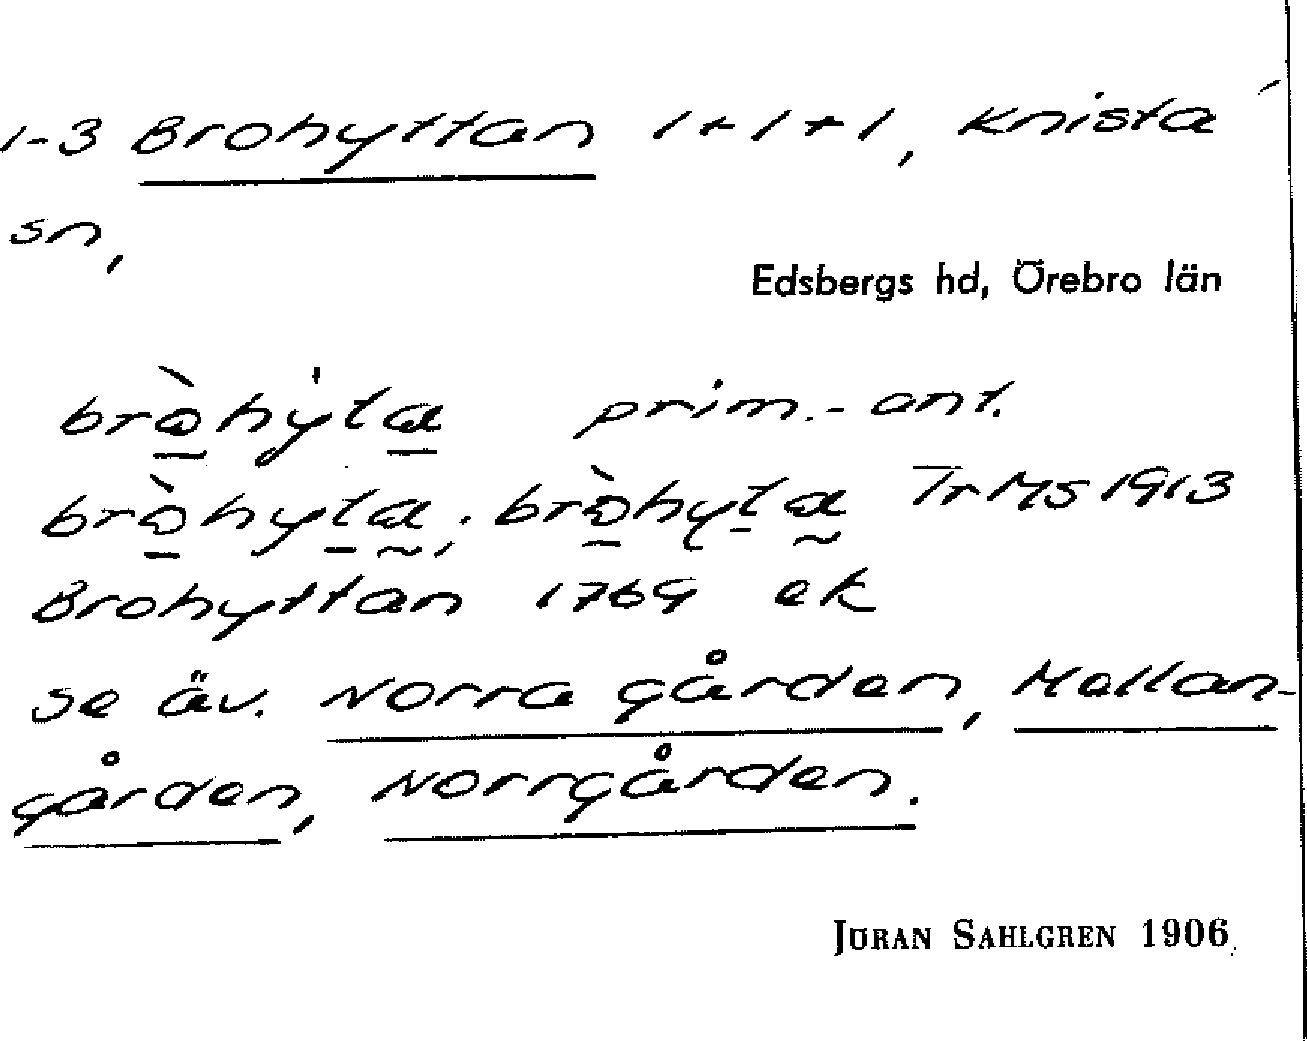 1-3 Brohyttan 1+1+1, Knista
sn,
Edsbergs hd, Örebro län
bròhy̍ta prim.-ant.
bròhyta, bròhyta TrMs 1913
Brohyttan 1769 ek
se äv. Norra gården, Mellan-
gården, Norrgården.
JÖRAN SAHLGREN 1906